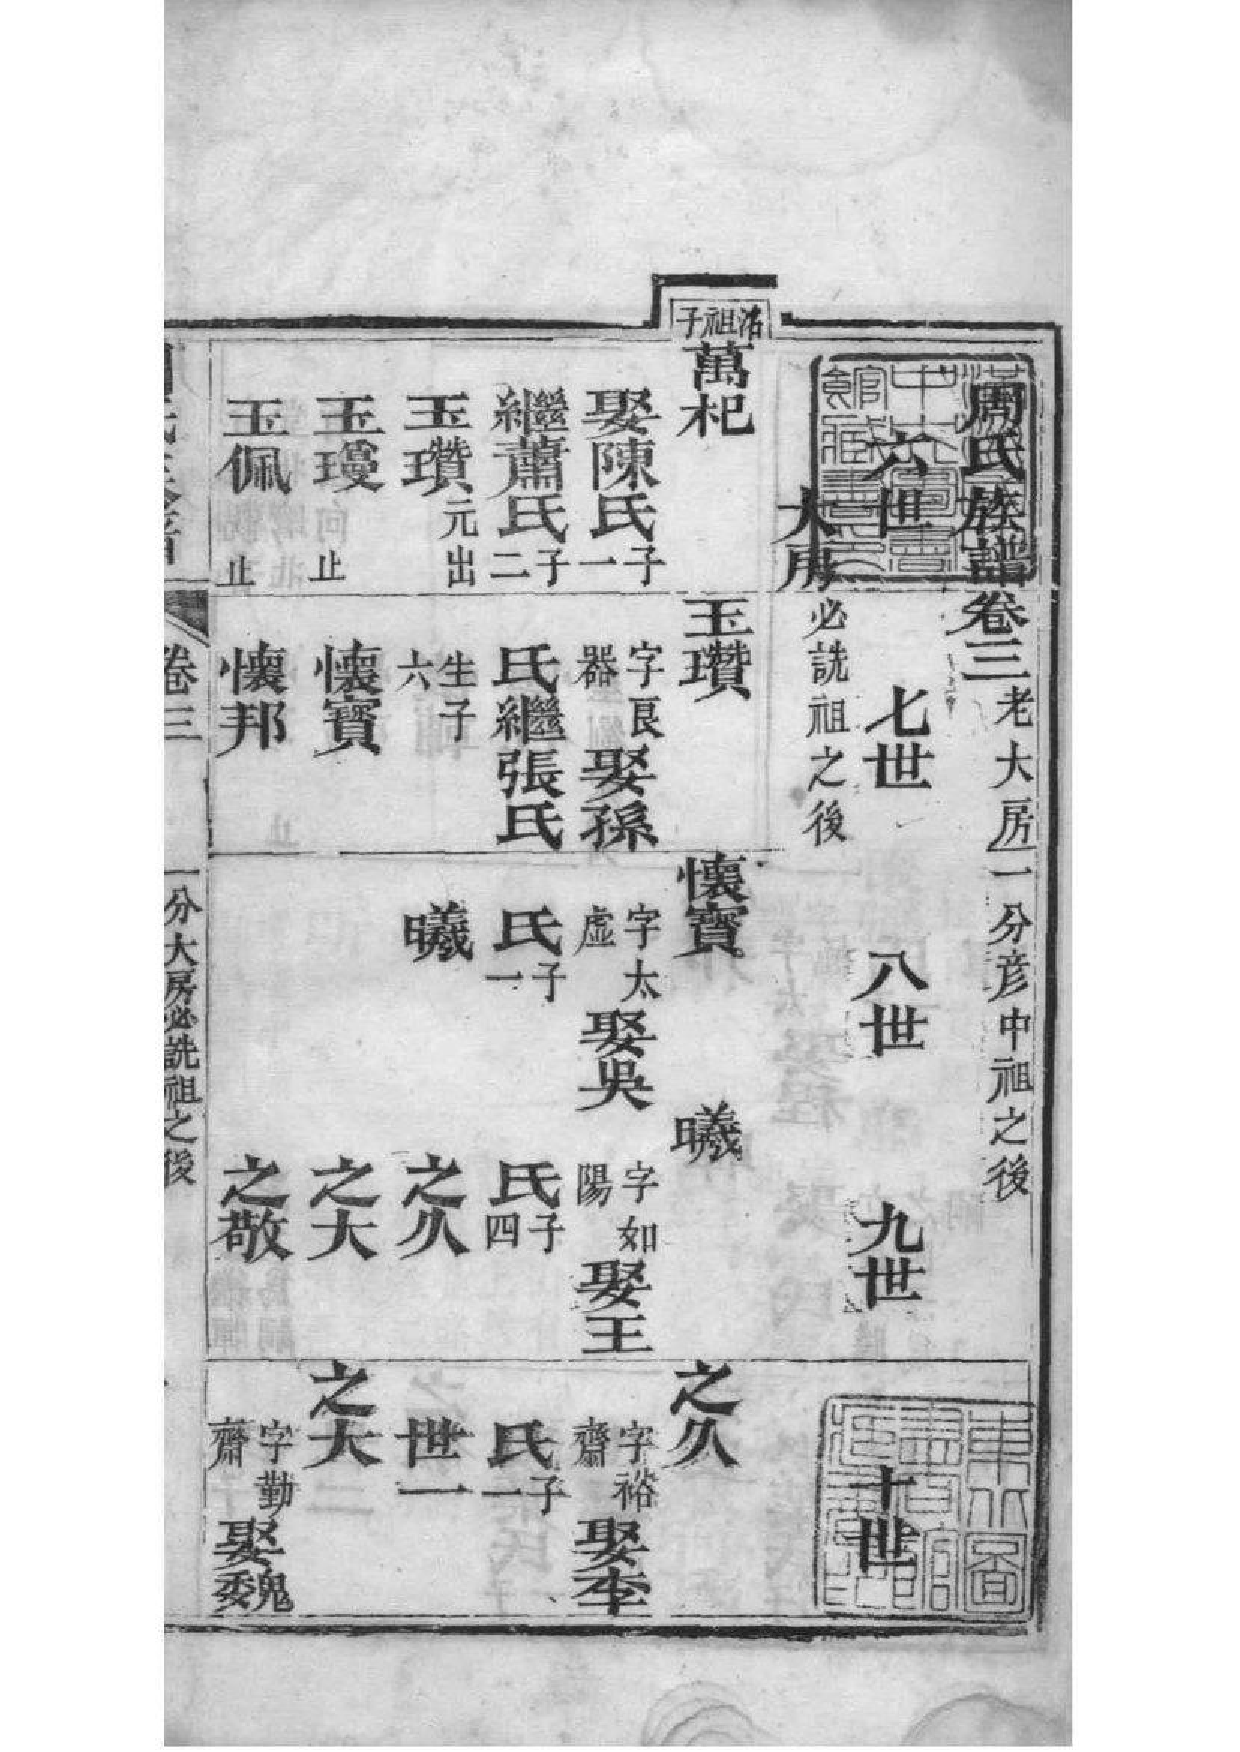 周氏族譜卷三 老大房一分彦中祖之後
六世
七世
八世
九世
十世
大房 必詵祖之後
洺祖子
萬杞
娶陳氏 子一
繼蕭氏 子二
玉瓚 元出
玉璦 止
玉佩 止
玉瓚
字良器 娶孫
氏繼張氏
生子六
懷寶
懷邦
懷寶
字太虛 娶吳
氏 子一
曦
曦
字如陽 娶王
氏 子四
之久
之大
之敬
之久
字裕齋 娶李
氏 子一
世一
之大
字勤齋 娶魏
卷三
一分大房必詵祖之後